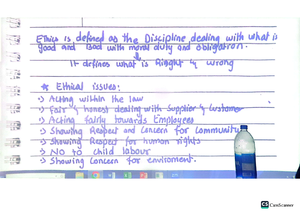 Ethics is defined as the Discipline dealing with what is
good and Bad with moral duty and obligation.
It defines what is Right & wrong
* Ethical issues:
→ Acting within the law
→ Fair & honest dealing with Supplier & Customer
→ Acting fairly towards Employees
→ Showing Respect and Concern for Community
→ Showing Respect for human rights
→ No to child labour
→ Showing Concern for enviroment.
CS CamScanner